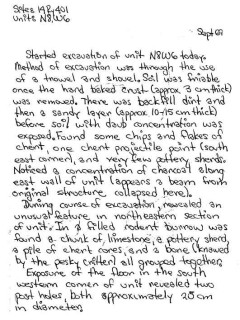 Units N8W6
Sept 09
Started excavation of unit N8W6 today.
Method of excavation was through the use
of a trowel and shovel. Soil was friable
once the hard baked crust (approx 3 cm thick)
was removed. There was backfill dirt and
then a sandy layer (approx 10-15 cm thick)
before soil with daub concentration was
exposed. Found some chips and flakes of
chert, one chert projectile point (south
east corner), and very few pottery sherds.
Noticed a concentration of charcoal along
east wall of unit (appears a beam from
original structure collapsed here).
During course of excavation, revealed an
unusual feature in northeastern section
of unit. In a filled rodent burrow was
found a chunk of limestone, a pottery sherd,
a pile of chert cores, and a bone (gnawed
by the pesky critter) all grouped together.
Exposure of the floor in the south
western corner of unit revealed two
post holes, both approximately 20 cm
in diameter.